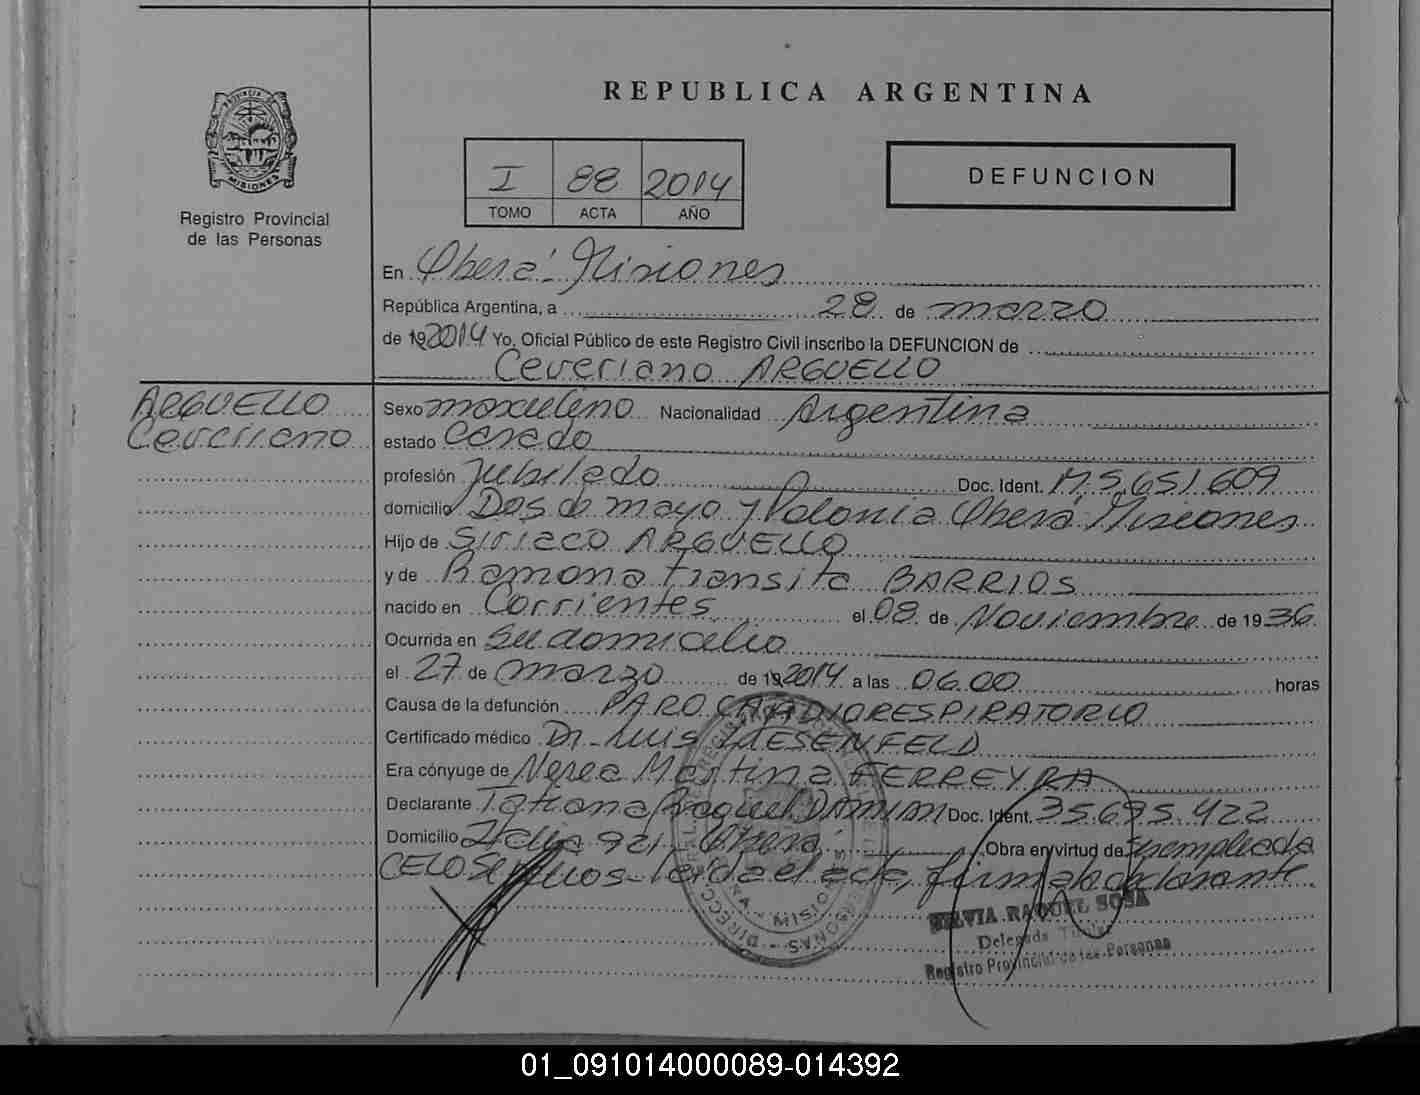 REPUBLICA ARGENTINA
PROVINCIA DE
MISIONES
Registro Provincial
de las Personas
I 88 2014
TOMO ACTA AÑO
DEFUNCION
En Oberá Misiones
República Argentina, a 28 de marzo
de 19 2014 Yo, Oficial Público de este Registro Civil inscribo la DEFUNCION de
Ceveriano ARGUELLO
ARGUELLO
Ceveriano
Sexo masculino Nacionalidad Argentina
estado Casado
profesión Jubilado Doc. Ident. M5.651.609
domicilio Dos de mayo y Polonia Oberá Misiones
Hijo de Siriaco ARGUELLO
y de Ramona transita BARRIOS
nacido en Corrientes el 08 de Noviembre de 1936
Ocurrida en su domicilio
el 27 de marzo de 19 2014 a las 06.00 horas
Causa de la defunción PARO CARDIORESPIRATORIO
Certificado médico Dr. Luis LIESENFELD
Era cónyuge de Nerea Martina FERREYRA
Declarante Tatiana Raquel DAMIAN Doc. Ident. 35.695.422
Domicilio 921 Oberá Obra en virtud de Ser empleada
CELO Seguros - Leída el acta, firma la declarante
SILVIA RAQUEL SOSA
Delegada Titular
Registro Provincial de las Personas
01_091014000089-014392